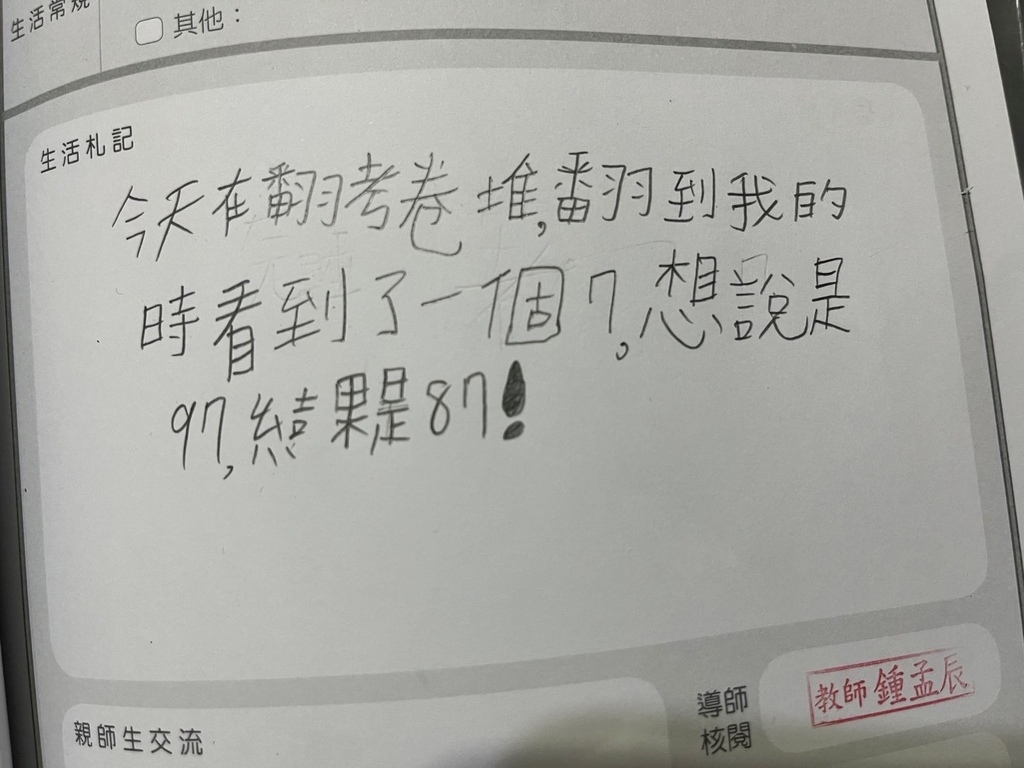 生活常規
其他：
生活札記
今天在翻考卷堆,翻到我的
時看到了一個7,想說是
97,結果是87!
親師生交流
導師
核閱
教師 鍾孟辰